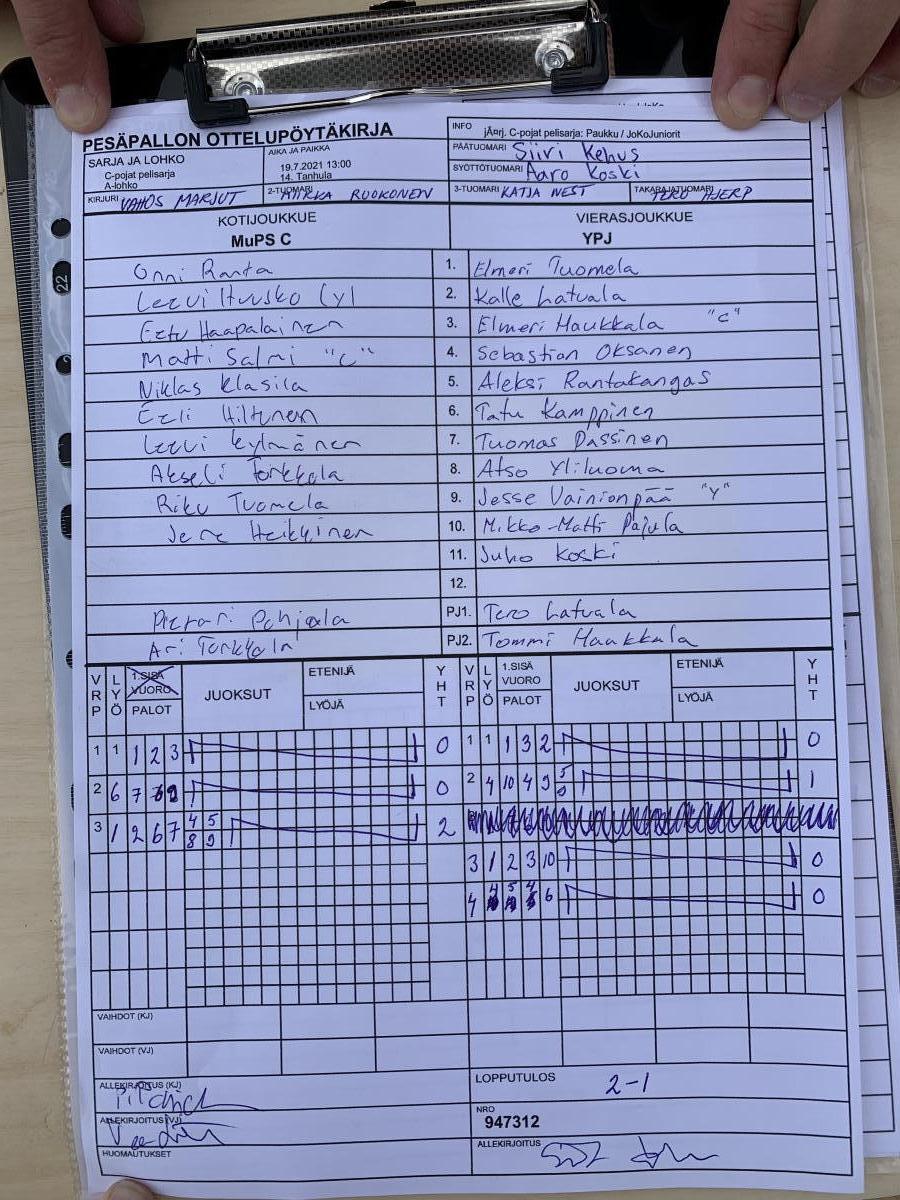 PESÄPALLON OTTELUPÖYTÄKIRJA
INFO jÄrj. C-pojat pelisarja: Paukku / JoKoJuniorit
SARJA JA LOHKO
C-pojat pelisarja
A-lohko
AIKA JA PAIKKA
19.7.2021 13:00
14. Tanhula
PÄÄTUOMARI Siiri Kehus
SYÖTTÖTUOMARI Aaro Koski
KIRJURI VAHOS MARJUT
2-TUOMARI RUOKONEN
3-TUOMARI KATJA NEST
TAKARAJATUOMARI TERO HJERP
KOTIJOUKKUE VIERASJOUKKUE
MuPS C YPJ
Onni Ranta 1. Elmeri Tuomela
Leevi Huusko (y) 2. Kalle Latvala
Eetu Haapalainen 3. Elmeri Haukkala "c"
Matti Salmi "c" 4. Sebastian Oksanen
Niklas Klasila 5. Aleksi Rantakangas
Eeli Hiltunen 6. Tatu Kamppinen
Leevi Kylmänen 7. Tuomas Passinen
Akseli Torkkola 8. Atso Yliluoma
Riku Tuomela 9. Jesse Vainionpää "y"
Jere Heikkinen 10. Mikko-Matti Pajula
11. Juho Koski
12.
Pietari Pohjola PJ1. Tero Latvala
Ari Torkkola PJ2. Tommi Haukkala
VRP LYÖ 1.SISÄ VUORO PALOT JUOKSUT ETENIJÄ LYÖJÄ YHT VRP LYÖ 1.SISÄ VUORO PALOT JUOKSUT ETENIJÄ LYÖJÄ YHT
1 1 1 2 3 0 1 1 1 3 2 0
2 6 7 0 2 4 10 4 9 5 1
3 1 2 6 7 4 5 8 9 2
3 1 2 3 10 0
4 4 5 4 6 0
VAIHDOT (KJ)
VAIHDOT (VJ)
ALLEKIRJOITUS (KJ)
LOPPUTULOS 2-1
ALLEKIRJOITUS (VJ)
NRO
947312
HUOMAUTUKSET
ALLEKIRJOITUS